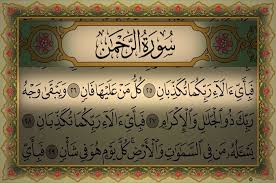 سُورَةُ الرَّحْمَٰنِ
فَبِأَيِّ ءَالَآءِ رَبِّكُمَا تُكَذِّبَانِ ﴿٢٥﴾ كُلُّ مَنْ عَلَيْهَا فَانٍ ﴿٢٦﴾ وَيَبْقَىٰ وَجْهُ
رَبِّكَ ذُو ٱلْجَلَٰلِ وَٱلْإِكْرَامِ ﴿٢٧﴾ فَبِأَيِّ ءَالَآءِ رَبِّكُمَا تُكَذِّبَانِ ﴿٢٨﴾
يَسْـَٔلُهُۥ مَن فِي ٱلسَّمَٰوَٰتِ وَٱلْأَرْضِ كُلَّ يَوْمٍ هُوَ فِي شَأْنٍ ﴿٢٩﴾ فَبِأَيِّ